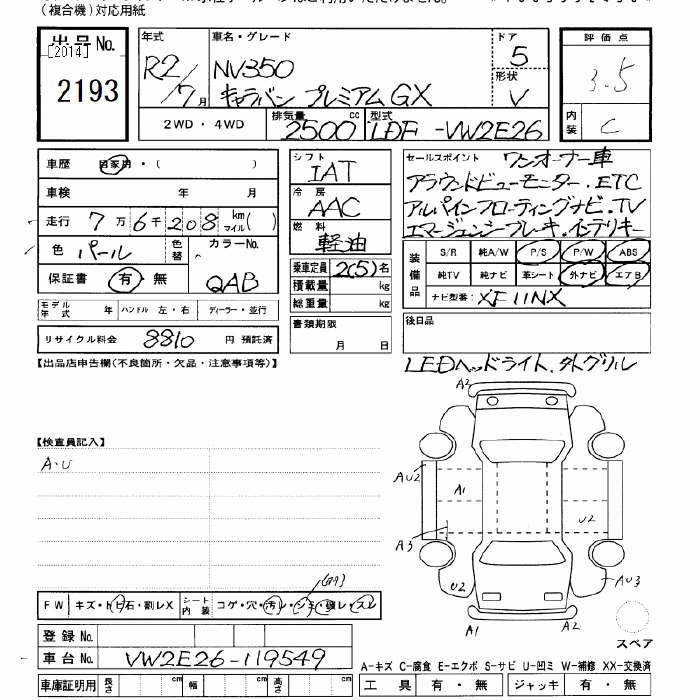 (複合機)対応用紙
出品No. [2014]
2193
年式 R2/7月
車名・グレード NV350
キャラバン プレミアムGX
ドア 5
形状 V
評価点 3.5
内装 C
2WD・4WD 排気量 2500 cc 型式 LDF-VW2E26
車歴 自家用・( )
車検 年 月
走行 7万6千208 km マイル( )
色 パール 色替 カラーNo. QAB
保証書 有・無
モデル年式 年 ハンドル 左・右 ディーラー・並行
リサイクル料金 8810 円 預託済
シフト IAT
冷房 AAC
燃料 軽油
乗車定員 2(5)名
積載量 kg
総重量 kg
書類期限 月 日
セールスポイント ワンオーナー車
アラウンドビューモニター.ETC
アルパインフローティングナビ.TV
エマージェンシーブレーキ.インテリキー
装備品 S/R 純A/W P/S P/W ABS
純TV 純ナビ 革シート 外ナビ エアB
ナビ型番: XF11NX
後日品
LEDヘッドライト.
【出品店申告欄(不良箇所・欠品・注意事項等)】
【検査員記入】
A・U
A2
AU2
A1
U2
A3
U2
AU3
A1
A2
スペア
FW キズ・トビ石・割レX シート内装 コゲ・穴・汚レ・
スレ
登録No.
車台No. VW2E26-119549
A-キズ C-腐食 E-エクボ S-サビ U-凹ミ W-補修 XX-交換済
車庫証明用 長さ cm 幅 cm 高さ cm
工具 有・無 ジャッキ 有・無